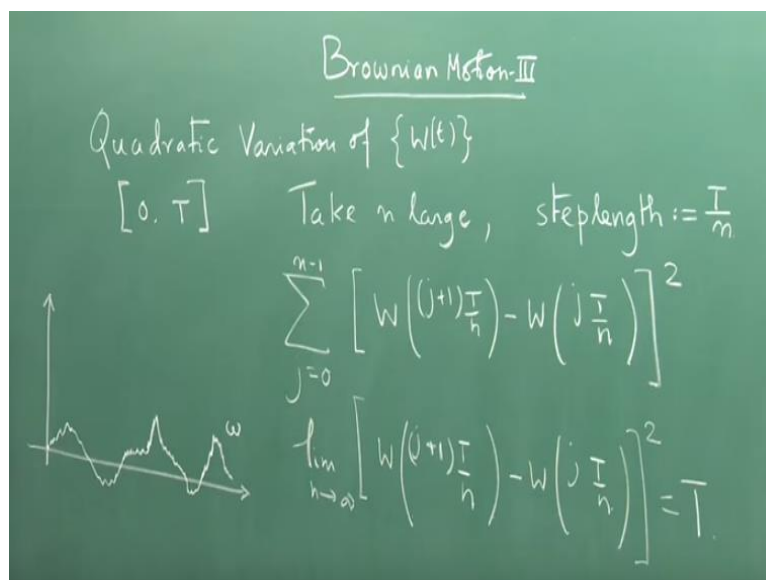 Brownian Motion-III
Quadratic Variation of {W(t)}
[0. T] Take n large, steplength := T/n
∑_{j=0}^{n-1} [W((j+1)T/n) - W(j T/n)]^2
ω
lim_{n→∞} [W((j+1)T/n) - W(j T/n)]^2 = T.